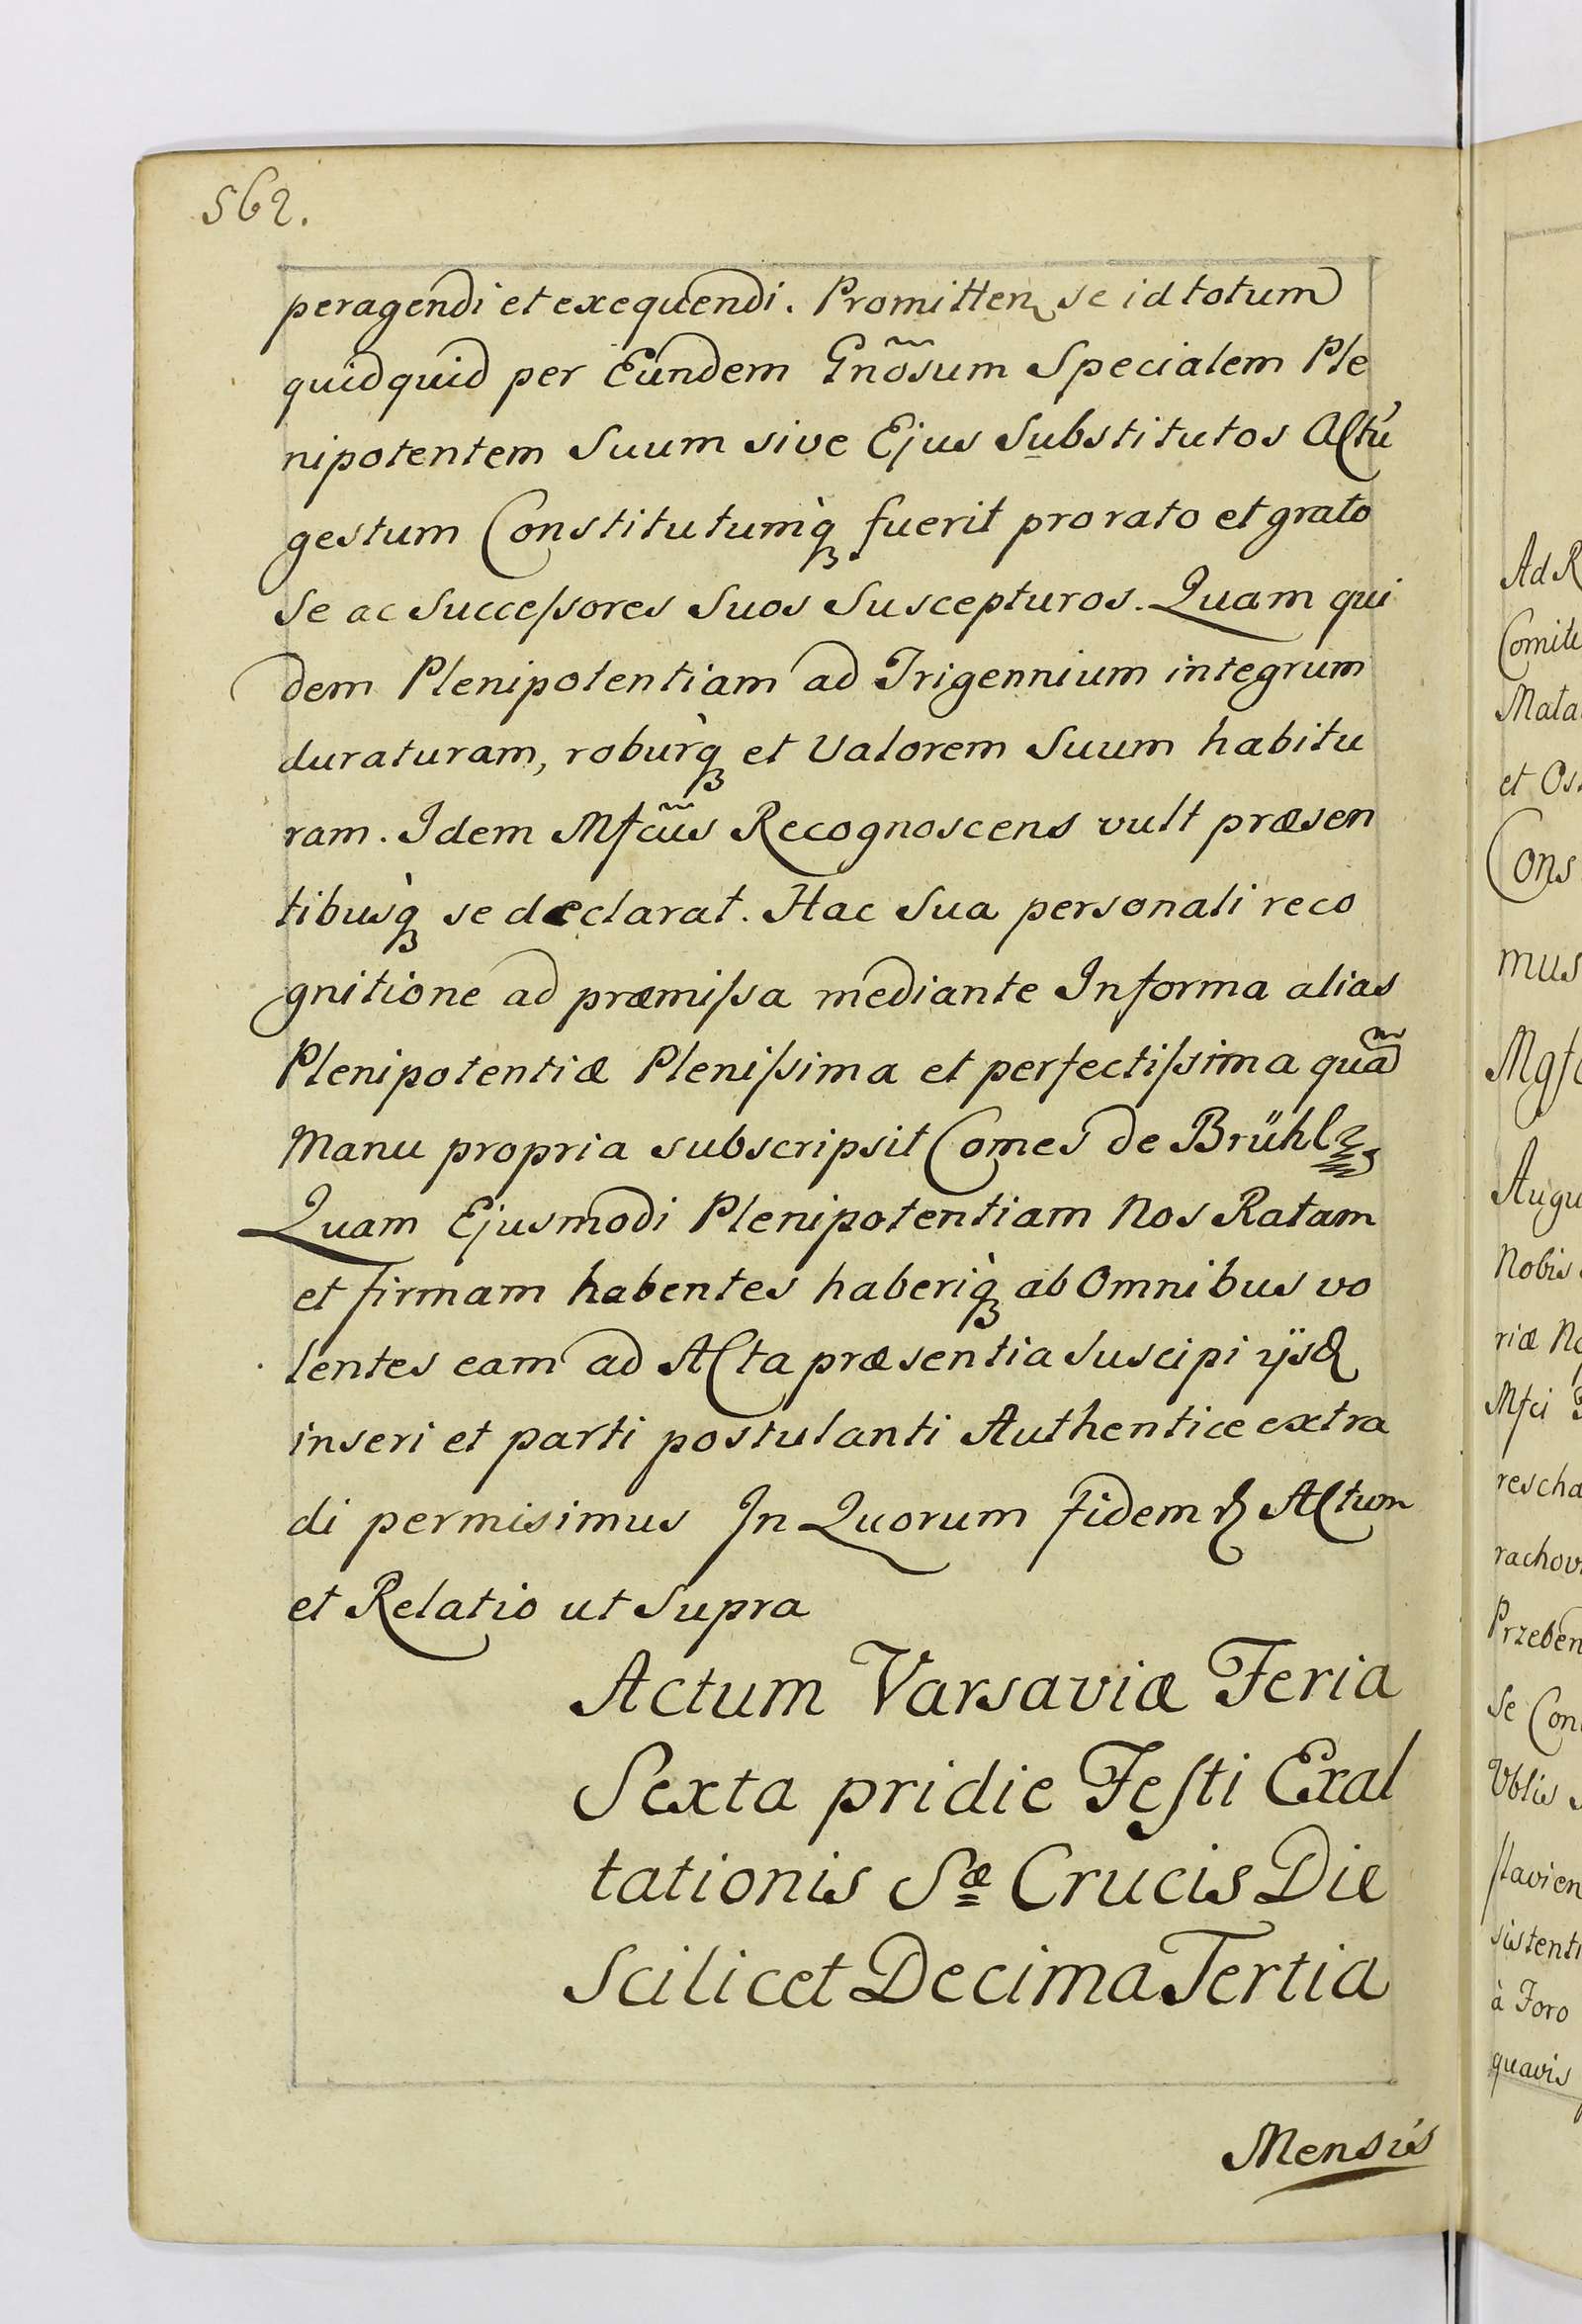 562.
peragendi et exequendi. Promitten se id totum
quidquid per Eundem Gnõsum Specialem Ple
nipotentem Suum sive Ejus Substitutos Actũ
gestum Constitutumq̀ꝫ fuerit pro rato et grato
Se ac Succeſsores Suos Suscepturos. Quam qui
dem Plenipotentiam ad Trigennium integrum
duraturam, roburq̀ꝫ et Valorem Suum habitu
ram. Idem Mfcũs Recognoscens vult præsen
tibusq̀ꝫ se declarat. Hac Sua personali reco
gnitione ad præmiſsa mediante In forma alias
Plenipotentiæ Pleniſsima et perfectiſsima quã
Manu propria subscripsit Comes de Brühl
Quam Ejusmodi Plenipotentiam Nos Ratam
et firmam habentes haberiq̀ꝫ ab Omnibus vo
lentes eam ad Acta præsentia Suscipi ijsꝗ
inseri et parti postulanti Authentice extra
di permisimus In Quorum fidem Actum
et Relatio ut Supra
Actum Varsaviæ Feria
Sexta pridie Feſti Exal
tationis Sæ Crucis Die
Scilicet Decima Tertia
Mensis
Ad R
Comite
Mata
et Os
Cons
mus
Mgfc
Augu
Nobis
riæ No
Mfci
rescha
rachov
Przeben
Se Con
Vblis
ſlavien
sistenti
à Foro
quavis